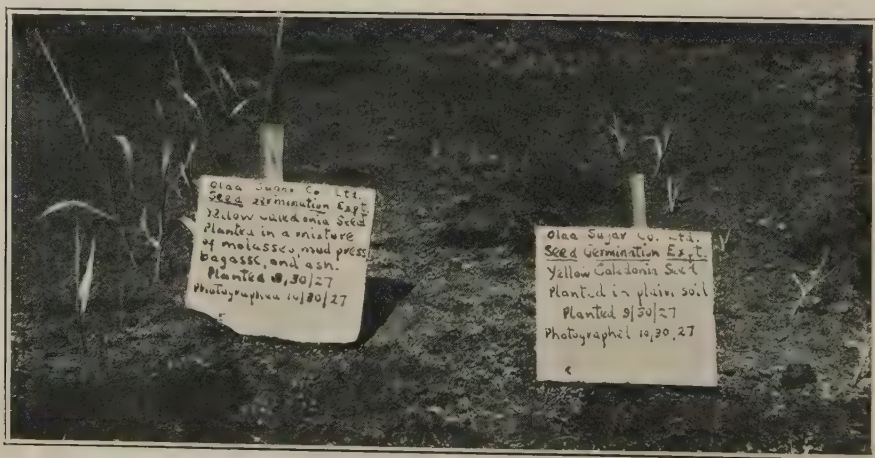 Olaa Sugar Co. Ltd.
Seed Germination Expt.
Yellow Caledonia Seed
Planted in a mixture
of molasses, mud press,
bagasse, and ash.
Planted 9/30/27
Photographed 10/30/27
Olaa Sugar Co. Ltd.
Seed Germination Expt.
Yellow Caledonia Seed
Planted in plain soil
Planted 9/30/27
Photographed 10/30/27